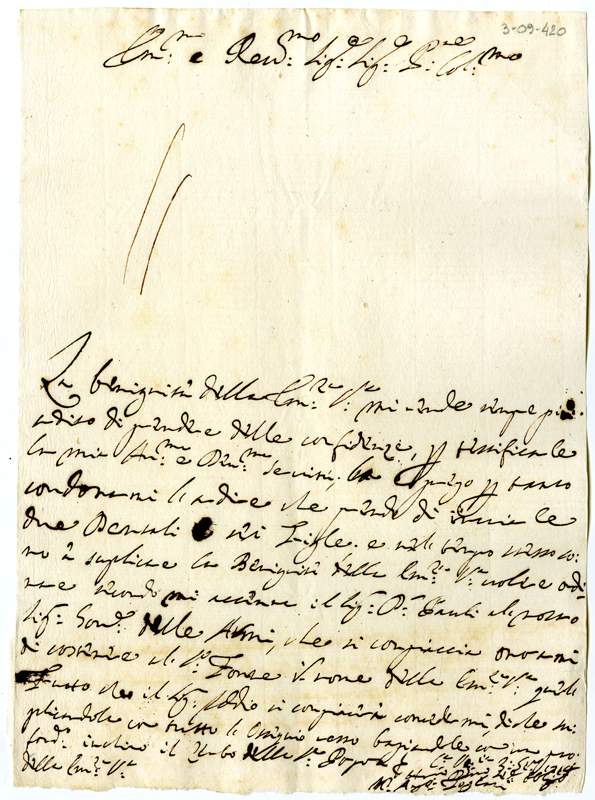 3-09-420
Em.mo e Rev.mo Sig.e Sig.e P.ne Col.mo
La benignità della Em.za V.ra mi rende sempre più
ardito di prendere delle confidenze, per testificarle
la mia Um.ma e Div.ma servitù, la prego per tanto
condonarmi l'ardire che prendo di inviarle
due Bentali e sei Triglie, e nel tempo stesso co-
mo à suplicare la Benignità della Em.za V.ra volere ordi-
nare secondo mi accenna il Sig.e D. Pauli al nostro
Sig.e Gov.e delle Armi, che si compiaccia onorarmi
di costituire al S.o Fonte il nome della Em.za V.ra quel
frutto che il Sig.e Iddio si compiacerà concedermi, di che su-
plicandola con tutto l'ossequio resto baciandole con una pro-
fond. inchino il lembo della S. Porpora
della Em.za V.ra